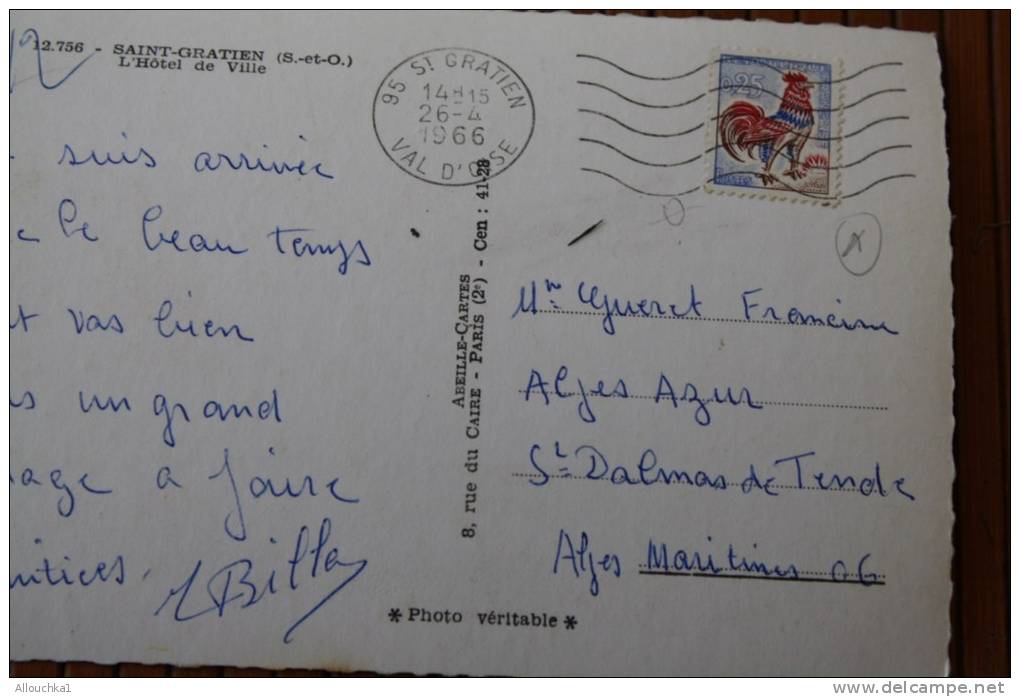 12.756 - SAINT-GRATIEN (S.-et-O.)
L'Hôtel de Ville
suis arrivée
le beau temps
vas bien
un grand
a faire
Billa
95 St GRATIEN
14H15
26-4
1966
VAL D'OISE
0,25
ABEILLE-CARTES
8, rue du CAIRE - PARIS (2e) - Cen : 41-28
Mme Gueret Francine
Alpes Azur
St Dalmas de Tende
Alpes Maritimes 06
* Photo véritable *
Allouchka1
www.delcampe.net